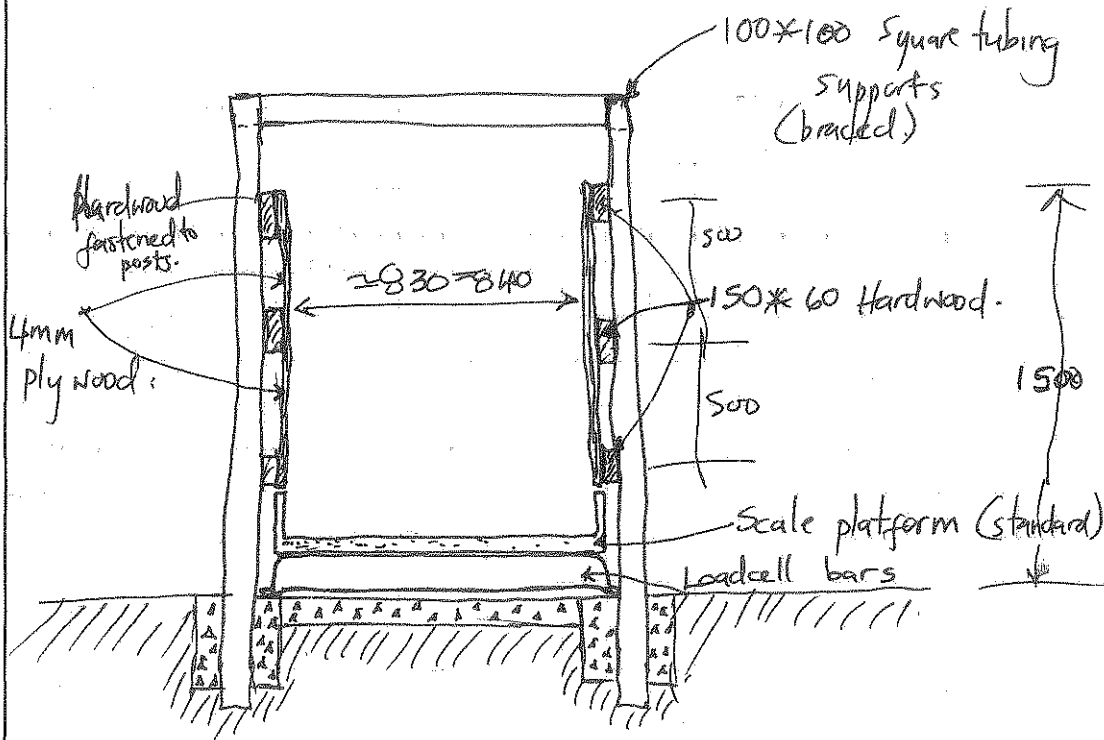 100*100 Square tubing
supports
(braced)
Hardwood
fastened to
posts.
4mm
plywood:
≈830≈840
500
150*60 Hardwood.
500
1500
Scale platform (standard)
Loadcell bars